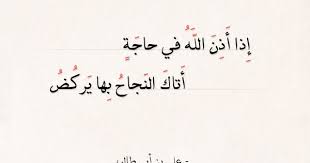 إِذا أَذِنَ اللَّهُ في حاجَةٍ
أَتاكَ النَجاحُ بِها يَركُضُ